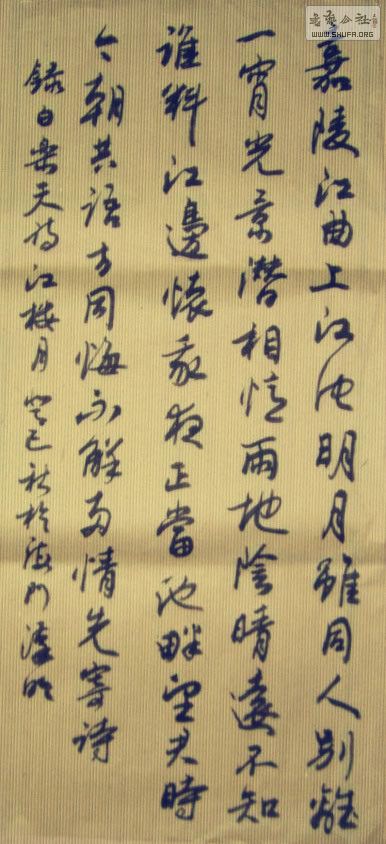 嘉陵江曲上江池明月雖同人别離
一宵光景潜相憶兩地陰晴遠不知
誰料江邊懷我夜正當池畔望君時
今朝共語方同悔不解多情先寄诗
録白樂天诗江樓月 癸巳秋於海门
公社
WWW.SHUFA.ORG